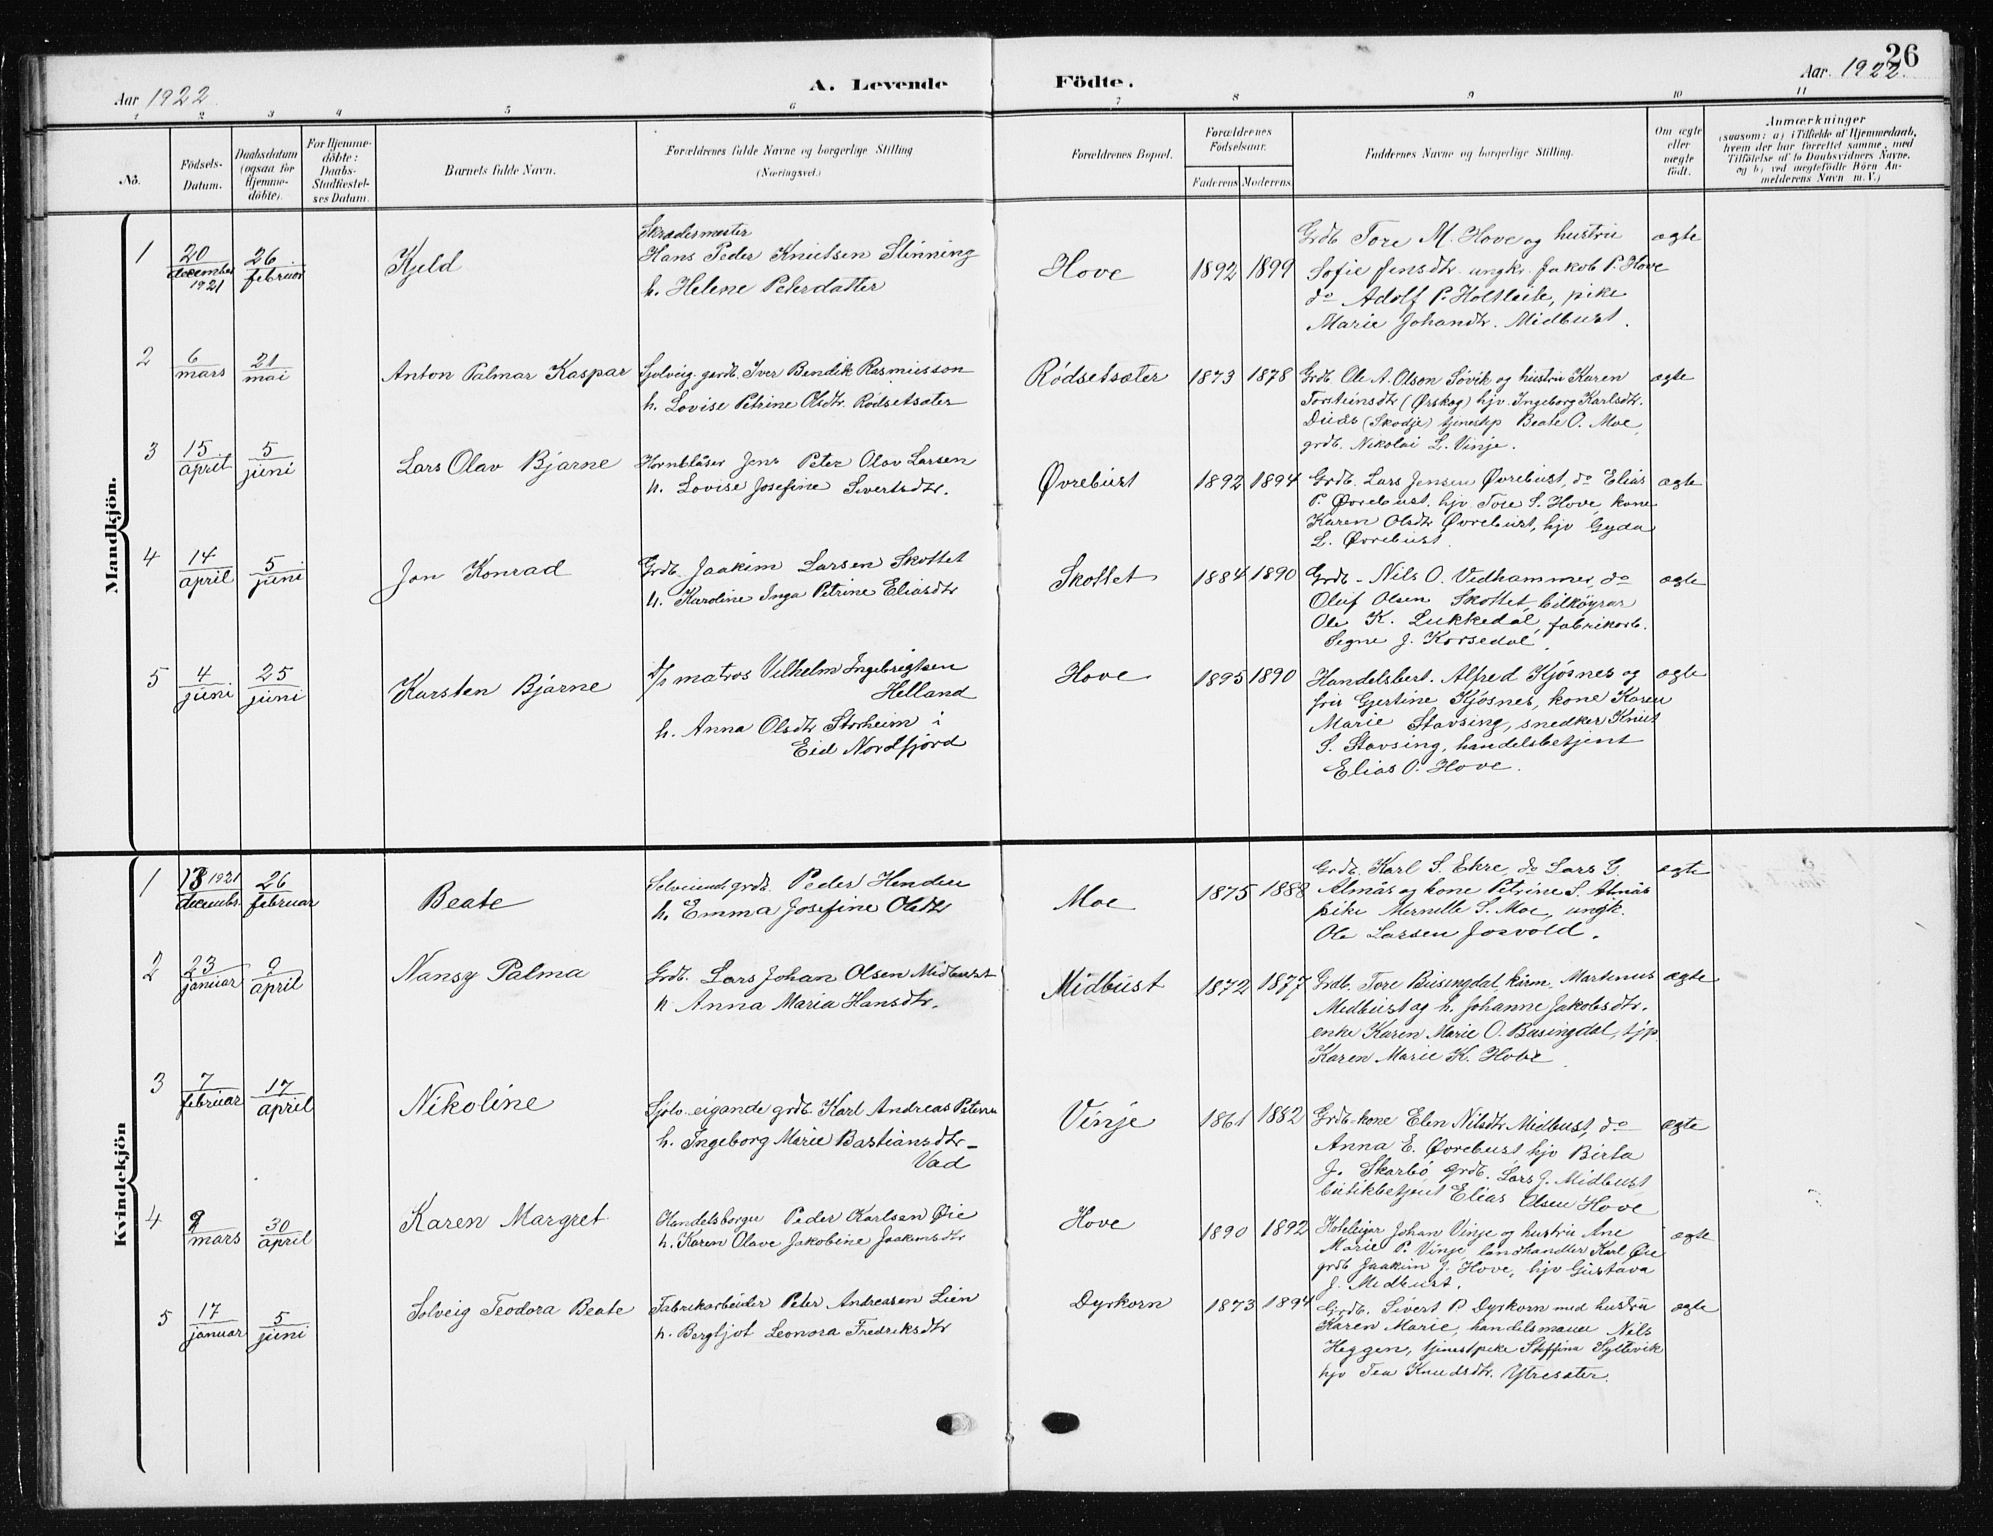 26
Aar 1922
A. Levende Födte.
Aar 1922.
1 2 3 4 5 6 7 8 9 10 11
No.
Födsels-
Datum.
Daabsdatum
(ogsaa for
Hjemme-
döbte).
For Hjemme-
döbte:
Daabs-
Stadfæstel-
ses Datum.
Barnets fulde Navn.
Forældrenes fulde Navne og borgerlige Stilling
(Næringsvei.)
Forældrenes Bopæl.
Forældrenes
Födselsaar.
Faderens Moderens
Faddernes Navne og borgerlige Stilling.
Om ægte
eller
uægte
födt.
Anmærkninger
(saasom: a) i Tilfælde af Hjemmedaab,
hvem der har forrettet samme, med
Tilföielse af to Daabsvidners Navne,
og b) ved uægtefödte Börn An-
melderens Navn m. V.)
Mandkjön.
1
20
december
1921
26
februar
Kjeld
Skrædermester
Hans Peder Knutsen Stinning
h. Helene Petersdatter
Hove
1892 1899
Grdb. Tore M. Hove og hustru
Sofie Jensdtr. ungkr. Jakob P. Hove
do Adolf P. Holtleite, pike
Marie Johandtr. Midbust.
ægte
2
6
mars
21
mai
Anton Palmar Kaspar
Sjolveig. gardb. Iver Bendik Rasmusson
h. Lovise Petrine Olsdtr. Rödsetsæter
Rødsetsæter
1873 1878
Grdb. Ole A. Olson Søvik og hustru Karen
Torsteinsdtr (Ørskog) hjv. Ingeborg Karlsdtr.
(Skodje) tjenestp Beate O. Moe,
grdb. Nikolai L. Vinje.
ægte
3
15
april
5
juni
Lars Olav Bjarne
Hornblåser Jens Peter Olav Larsen
h. Lovise Josefine Sivertsdtr.
Øvrebust
1892 1894
Grdb. Lars Jensen Øvrebust, do Elias
P. Øvrebust, hjv. Tore S. Hove, kone
Karen Olsdtr Øvrebust, hjv Gyda
L. Øvrebust.
ægte
4
14
april
5
juni
Jon Konrad
Grdb. Jaakim Larsen Skottet
h. Karoline Inga Petrine Eliasdtr
Skottet
1884 1890
Grdb. Nils O. Vedhammer, do
Oluf Olsen Skottet, bilköyrar
Ole K. Lukkedal, fabrikarb.
Signe J. Korsedal.
ægte
5
4
juni
25
juni
Karsten Bjarne
d/s matros Vilhelm Ingebrigtsen
Helland
h. Anna Olsdtr Storheim i
Eid Nordfjord
Hove
1895 1890
Handelsbert. Alfred Kjösnes og
fru Gjertine Kjøsnes, kone Karen
Marie Stavsing, snedker Knut
S. Stavsing, handelsbetjent
Elias O. Hove.
ægte
Kvindekjön
1
13 1921
decembr.
26
februar
Beate
Selveiende grdb. Peder Henden
h. Emma Josefine Olsdtr
Moe
1875 1888
Grdb. Karl S. Ekre, do Lars G.
Almås og kone Petrine S. Almås
pike Mernille S. Moe, ungk.
Ole Larsen Josvold.
ægte
2
23
januar
9
april
Nansy Palma
Grdb. Lars Johan Olsen Midbust
h Anna Maria Hansdtr.
Midbust
1872 1877
Grdb. Tore Busengdal, kårm. Martinus
Midbust og h. Johanne Jakobsdtr.
enke Karen Marie O. Busingdal, tjp.
Karen Marie K. Hove
ægte
3
7
februar
17
april
Nikoline
Sjölv-eigande grdb. Karl Andreas Petersen
h. Ingeborg Marie Bastiansdtr-
Vad
Vinje
1861 1882
Grdb-kone Elen Nilsdtr Midbust, do
Anna E. Øvrebust hjv Birta
J. Skarbö, grdb. Lars J. Midbust,
butikbetjent Elias Olsen Hove
ægte
4
9
mars
30
april
Karen Margret
Handelsborger Peder Karlsen Øie
h. Karen Olave Jakobine Jaakimsdtr
Hove
1890 1892
Hoteleijar Johan Vinje og hustru Ane
Marie P. Vinje, landhandler Karl Øie
grdb Jaakim J. Hove, hjv Gustava
J. Midbust.
ægte
5
17
januar
5
juni
Solveig Teodora Beate
Fabrikarbeider Peter Andreassen Lien
h. Bergljot Leonora Fredriksdtr
Dyrkorn
1873 1894
Grdb. Sivert P. Dyrkorn med hustru
Karen Marie, handelsmann Nils
Heggen, tjenestpike Steffina Syltevik
hjv Tea Knudsdtr. Ytresæter.
ægte